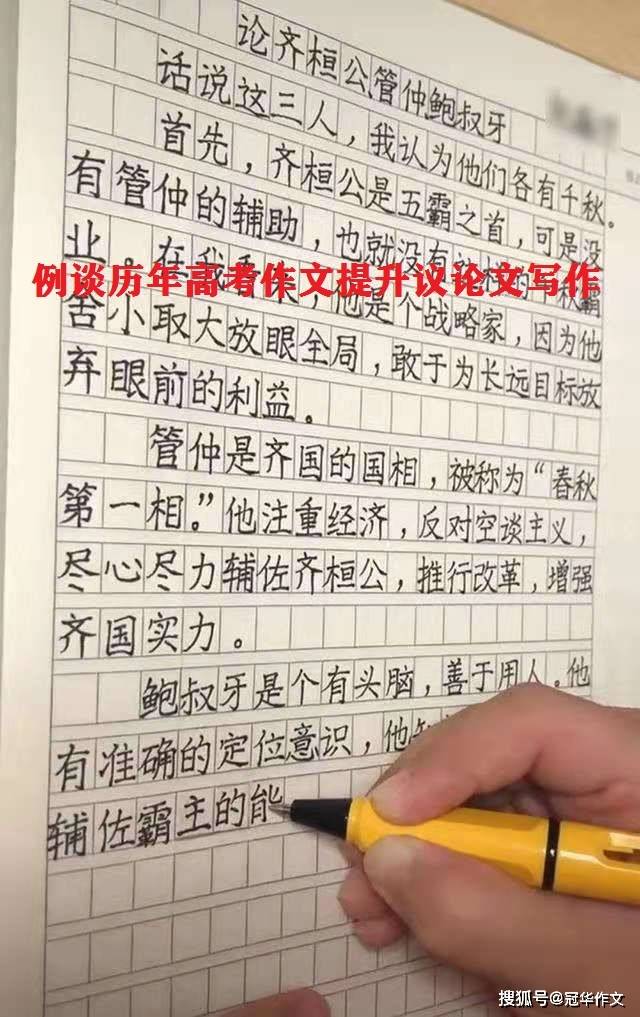 论齐桓公管仲鲍叔牙
话说这三人，我认为他们各有千秋。
首先，齐桓公是五霸之首，可是没
有管仲的辅助，也就没有
业。在我看来，他是个战略家，因为他
例谈历年高考作文提升议论文写作
舍小取大放眼全局，敢于为长远目标放
弃眼前的利益。
管仲是齐国的国相，被称为“春秋
第一相。”他注重经济，反对空谈主义，
尽心尽力辅佐齐桓公，推行改革，增强
齐国实力。
鲍叔牙是个有头脑，善于用人。他
有准确的定位意识，他
辅佐霸主的能
搜狐号@冠华作文